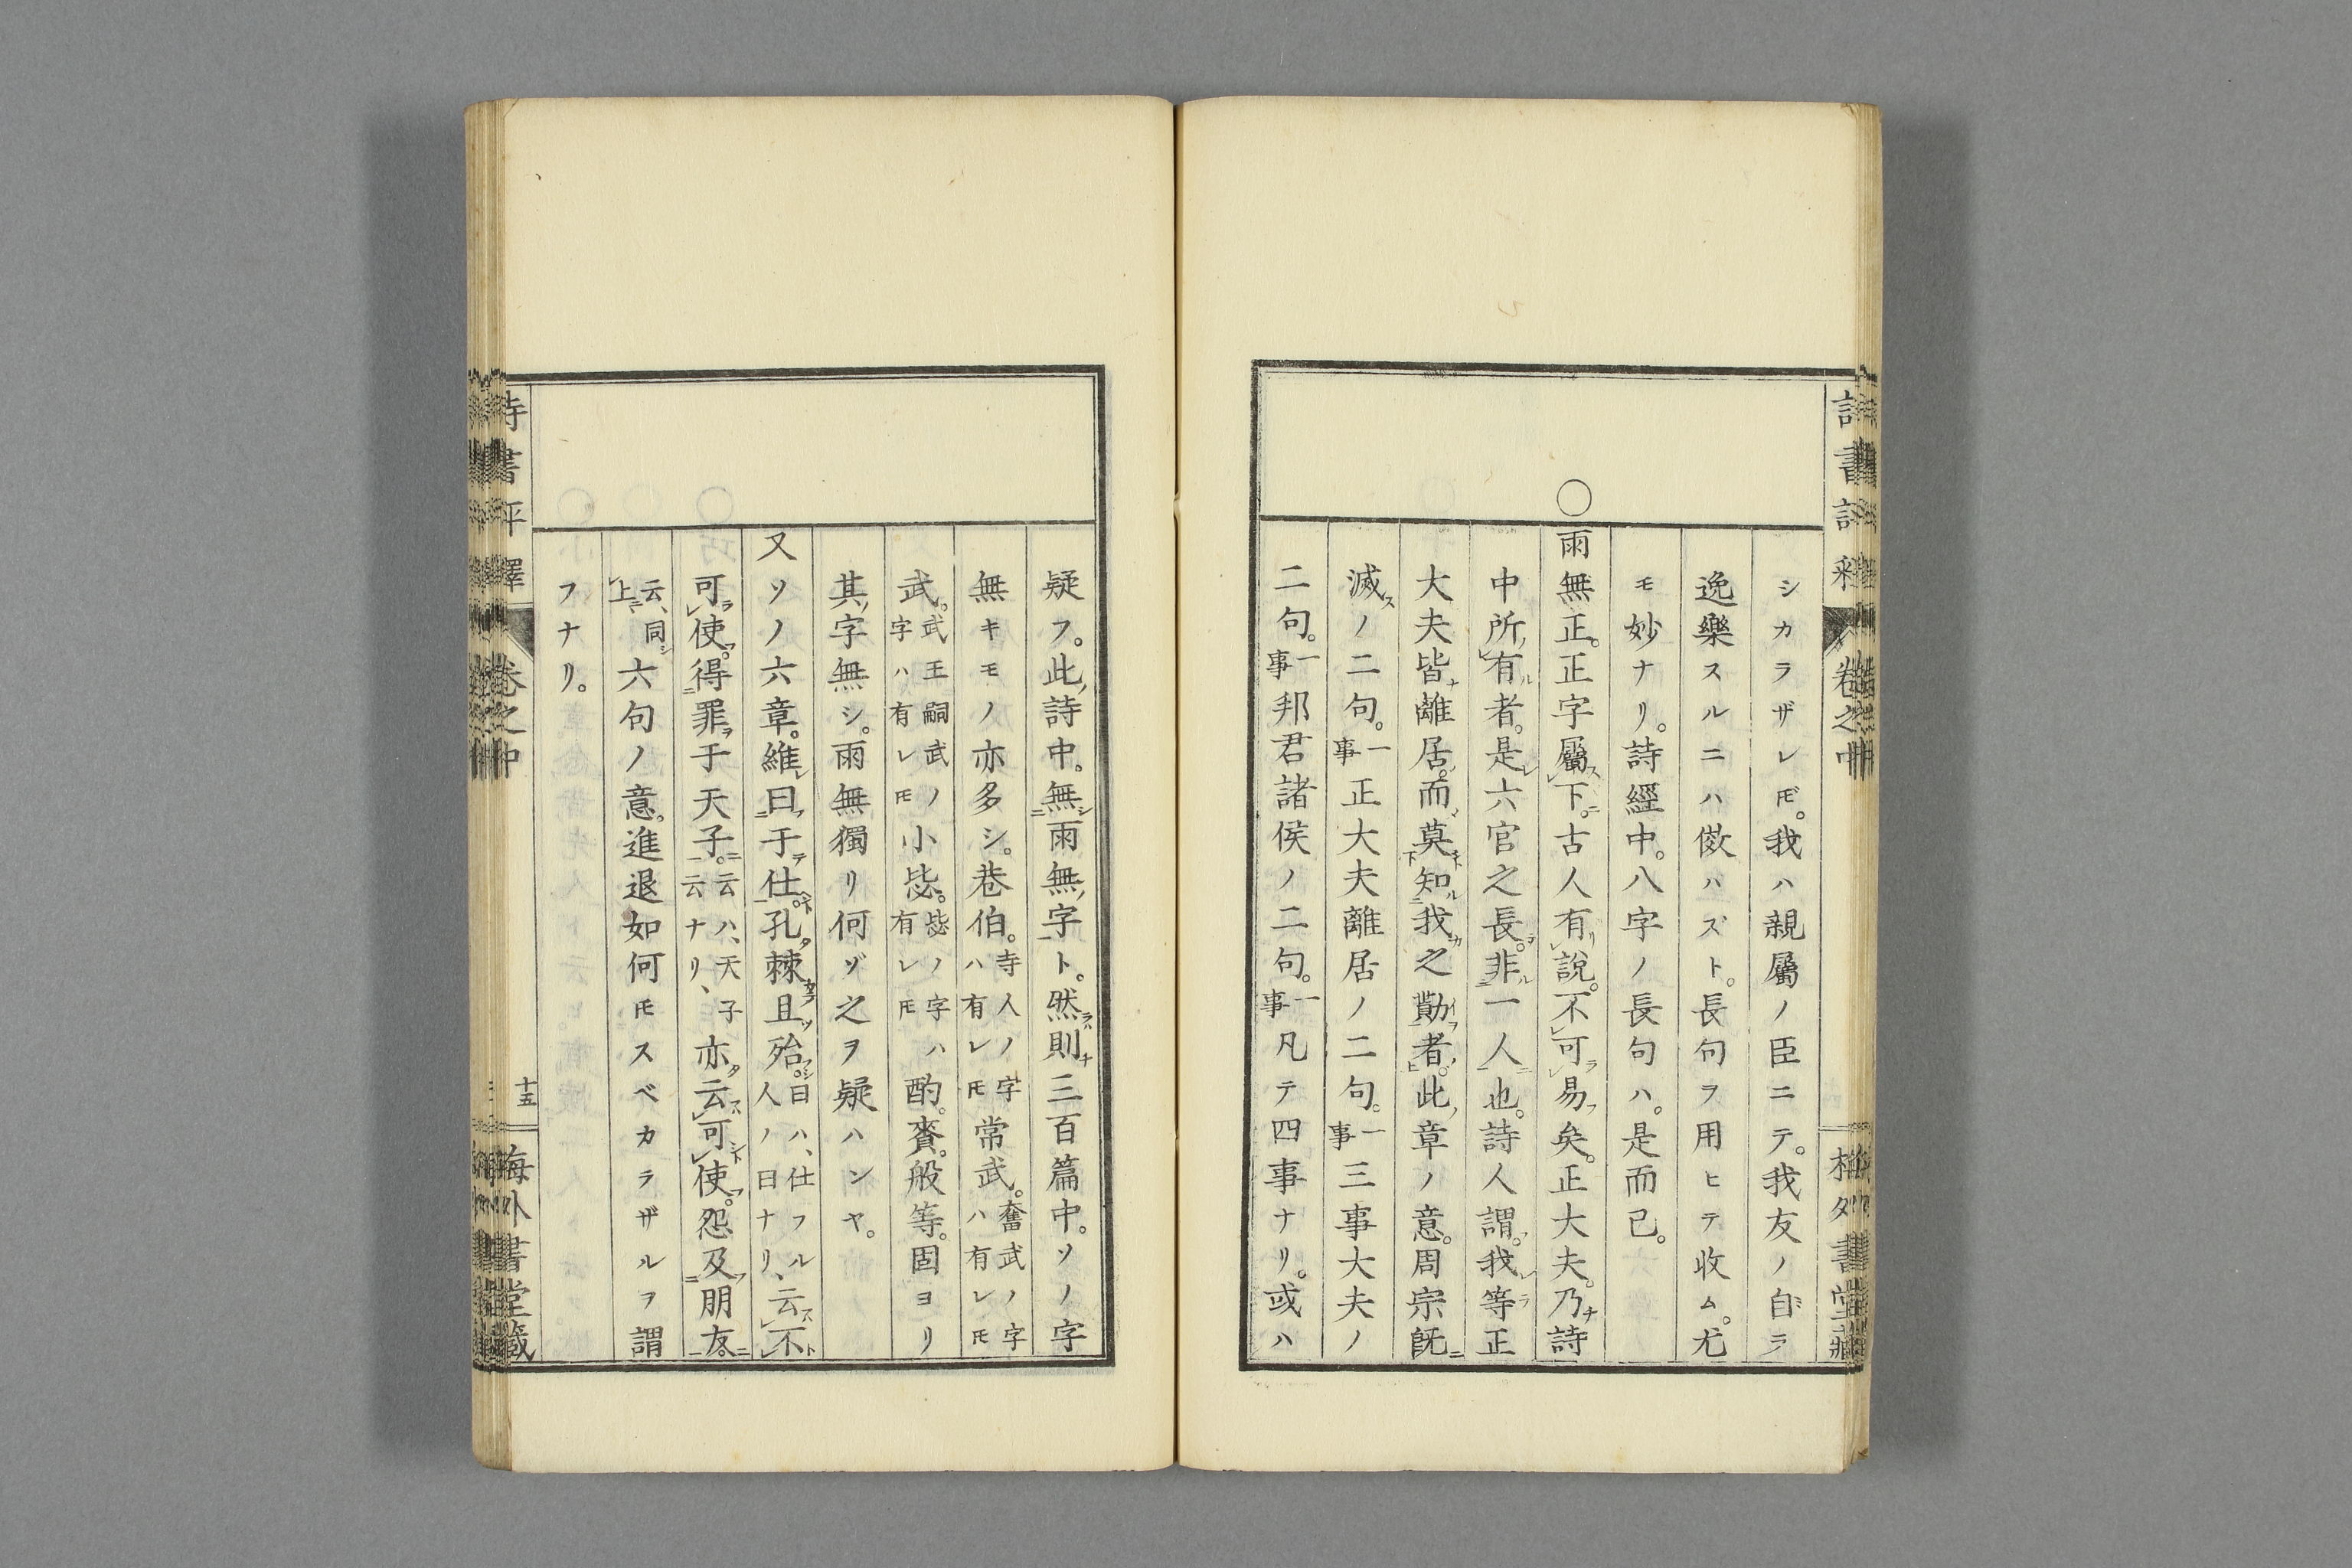 シカラザレ𪜈。我ハ親屬ノ臣ニテ。我友ノ自ラ
逸樂スルニハ傚ハズト。長句ヲ用ヒテ收ム。尤
モ妙ナリ。詩經中。八字ノ長句ハ。是而已。
○
雨無正。正字屬下。古人有說。不可易矣。正大夫。乃詩
中所有者。是六官之長。非一人也。詩人謂。我等正
大夫皆離居。而莫知我之勩者。此章ノ意。周宗旣
滅ノ二句。一事正大夫離居ノ二句。一事三事大夫ノ
二句。一事邦君諸侯ノ二句。一事凡テ四事ナリ。或ハ
疑フ。此詩中。無雨無字ト。然則三百篇中。ソノ字
無キモノ亦多シ。巷伯。寺人ノ字ハ有レ𪜈常武。奮武ノ字ハ有レ𪜈
武。武王嗣武ノ字ハ有レ𪜈小毖。毖ノ字ハ有レ𪜈酌。賚。般等。固ヨリ
其字無シ。雨無獨リ何ゾ之ヲ疑ハンヤ。
又ソノ六章。維曰于仕。孔棘且殆。曰ハ、仕フル人ノ曰ナリ、云不
可使。得罪于天子。云ハ、天子云ナリ、亦云可使。怨及朋友。
云、同上六句ノ意。進退如何𪜈スベカラザルヲ謂
フナリ。
卷之中
十五